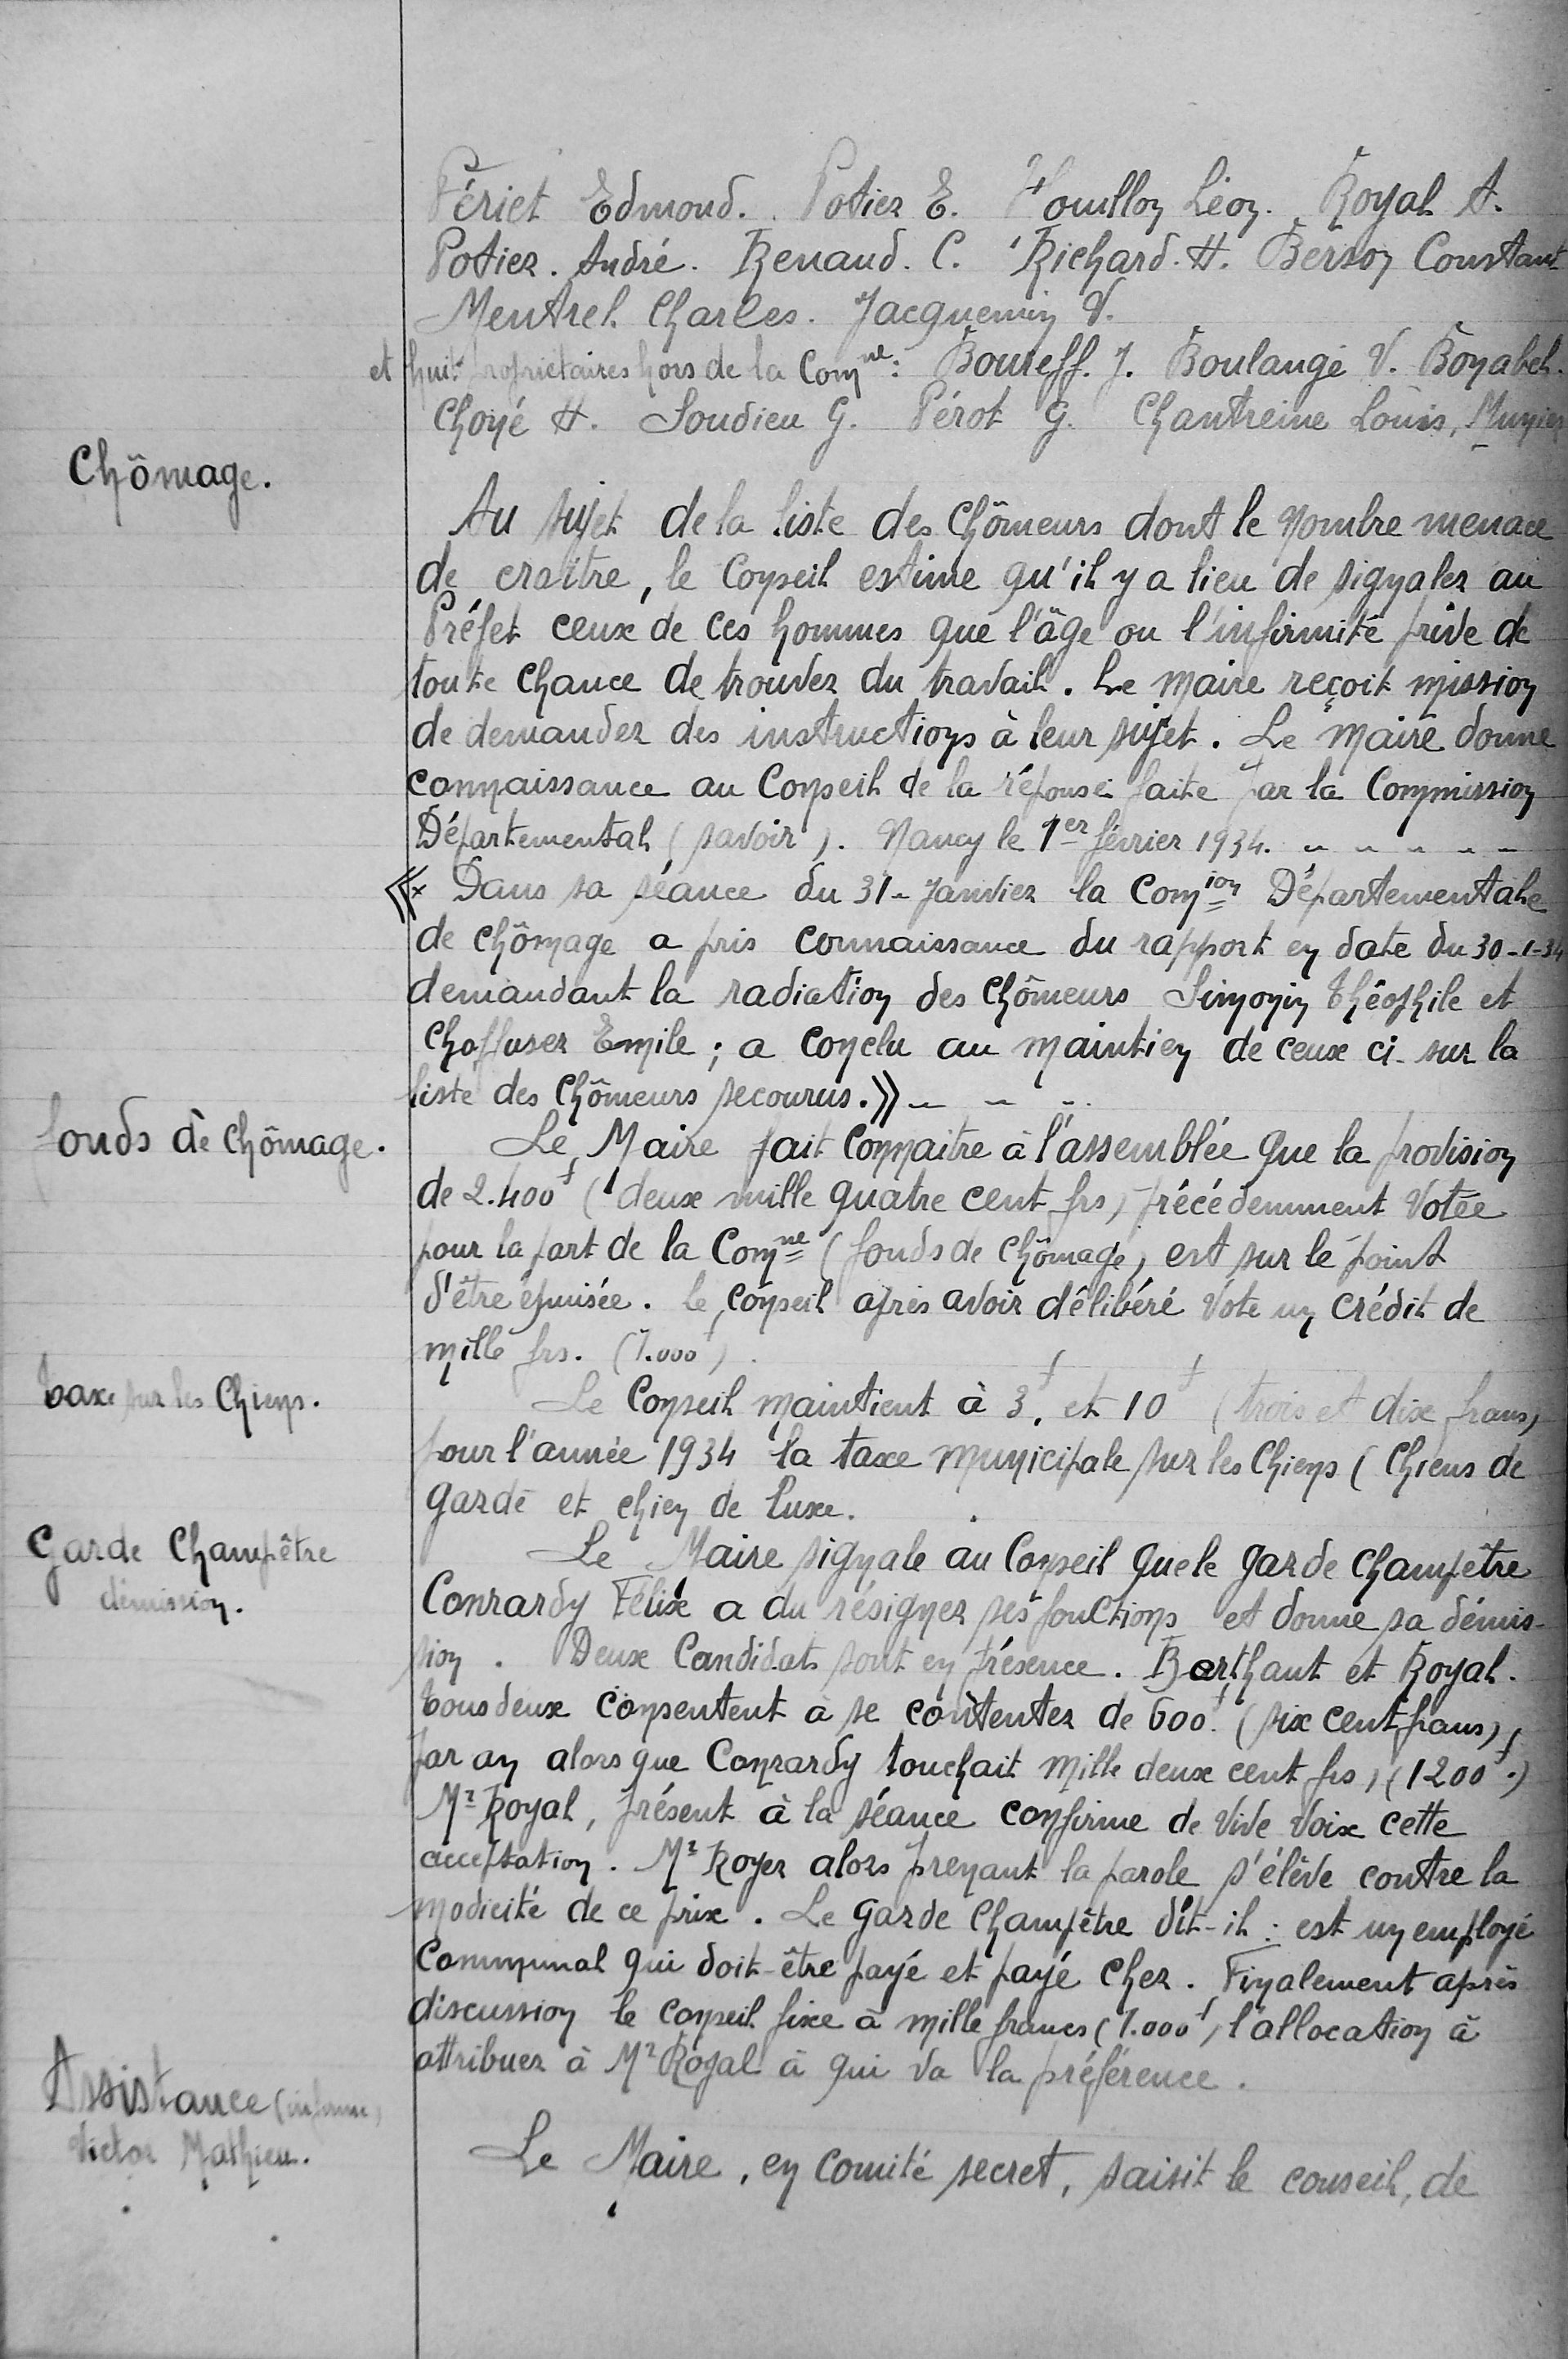 Fériet Edmond. Potier E. Houillon Léon. Royal A.
Potier. André. Renaud. C. Richard. H. Berson Constant
Mentrel. Charles. Jacquemin V.
et huit propriétaires hors de la Comne: Boureff. J. Boulangé V. Bonabel.
Choyé H. Soudieu G. Pérot G. Chantreine Louis, Munier
Chômage.
Au sujet de la liste des chômeurs dont le nombre menace
de craître, le Conseil estime qu'il y a lieu de signaler au
Préfet ceux de ces hommes que l'âge ou l'infirmité prive de
toute chance de trouver du travail. Le maire reçoit mission
de demander des instructions à leur sujet. Le Maire donne
connaissance au Conseil de la réponse faite par la Commission
Départemental (savoir). Nancy le 1er février 1934.
« Dans sa séance du 31-Janvier la Comion Départementale
de chômage a pris connaissance du rapport en date du 30-1-34
demandant la radiation des chômeurs Simonin Théophile et
Choffuser Emile ; a conclu au maintien de ceux ci- sur la
liste des chômeurs secourus. »
fonds de chômage.
Le Maire fait connaitre à l'assemblée que la provision
de 2.400f (deux mille quatre cent frs) précédemment votée
pour la part de la Comne (fonds de chômage) est sur le point
d'être épuisée. le conseil après avoir délibéré vote un crédit de
mille frs. (1.000f)
taxe sur les Chiens.
Le Conseil maintient à 3f. et 10f (trois et dix frans)
pour l'année 1934 la taxe municipale sur les Chiens (Chiens de
garde et chien de luxe.
Garde Champêtre
démission.
Le Maire signale au Conseil que le garde champêtre
Conrardy Félix a du résigner ses fonctions et donne sa démis-
sion. Deux Candidats sont en présence. Barthaut et Royal.
tous deux consentent à se contenter de 600f. (six cent frans)
par an alors que Conrardy touchait mille deux cent frs) (1200f.)
Mr Royal, présent à la séance confirme de vive voix cette
acceptation. Mr Royer alors prenant la parole s'élève contre la
modicité de ce prix. Le garde champêtre dit-il : est un employé
communal qui doit-être payé et payé cher. Finalement après
discussion le conseil fixe à mille francs (1.000f) l'allocation à
attribuer à Mr Royal à qui va la préférence.
Assistance (infirme)
Victor Mathieu.
Le Maire, en comité secret, saisit le conseil, de